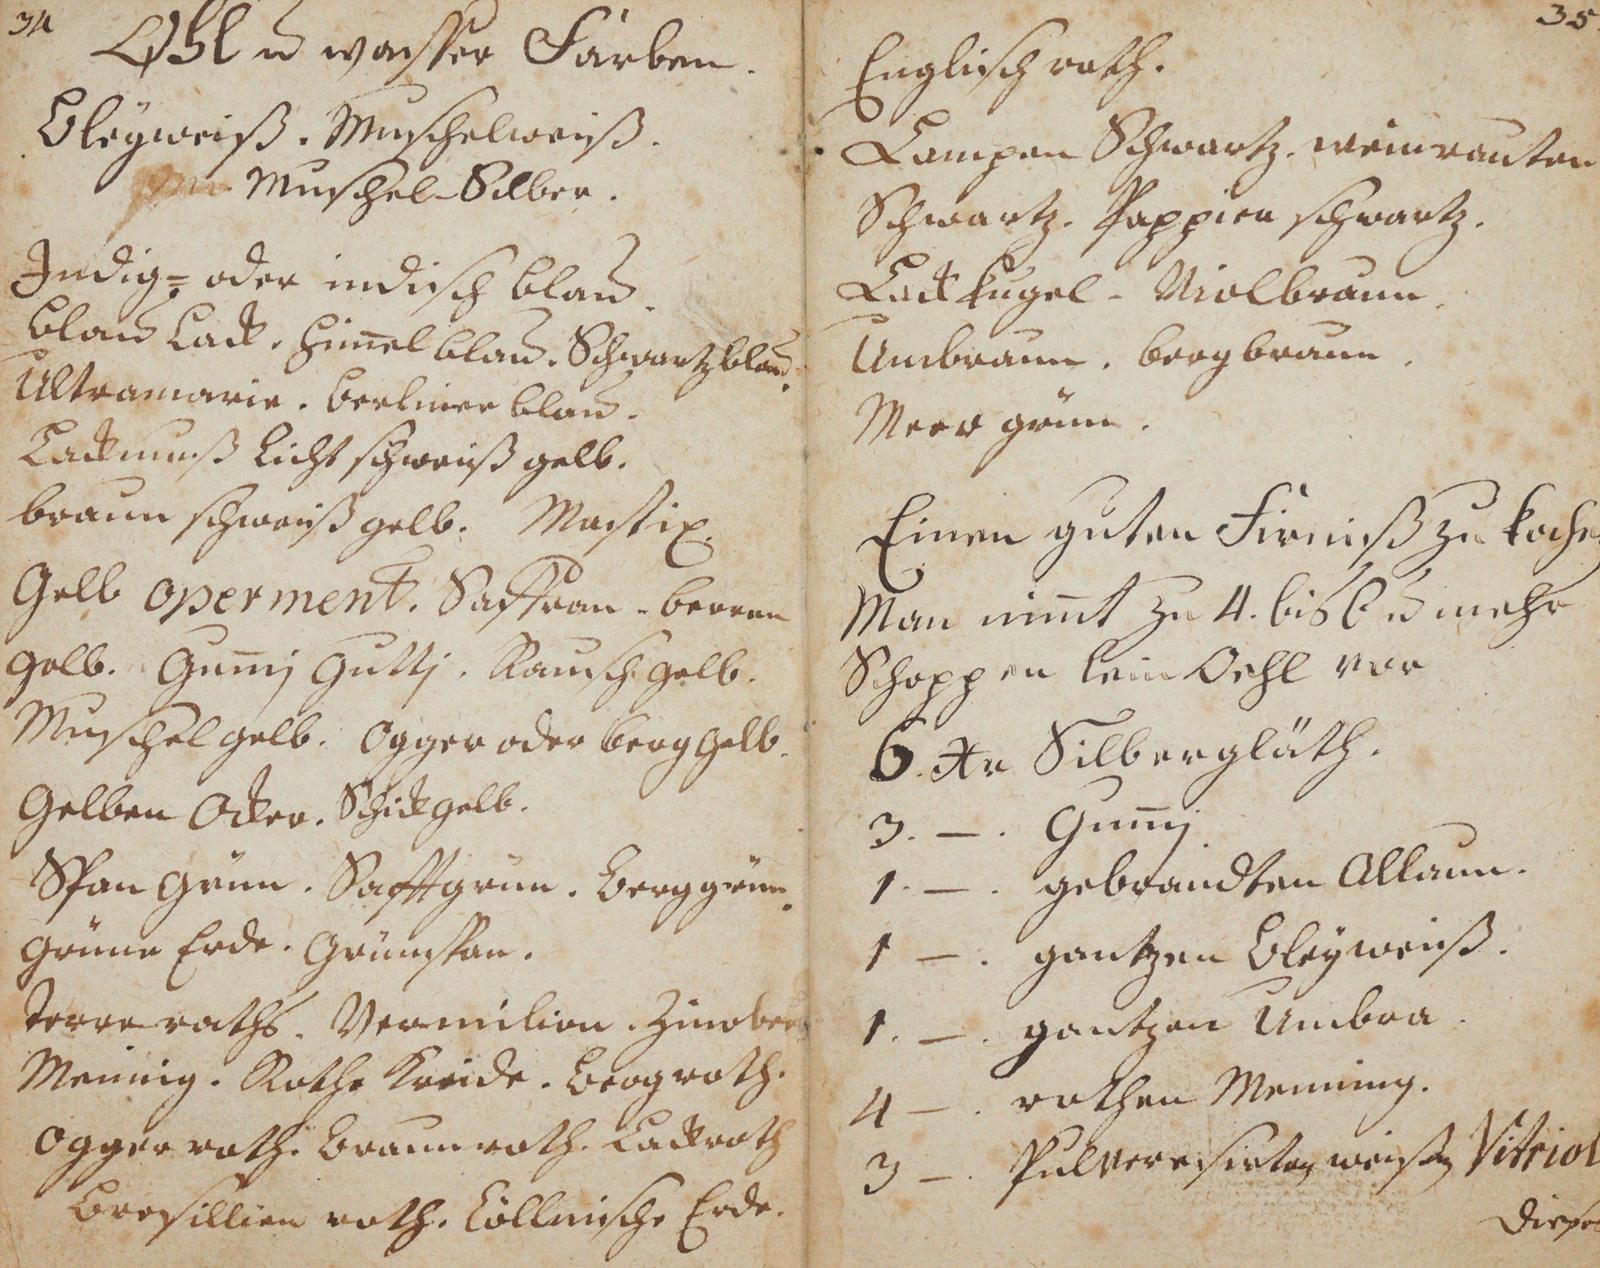 34
Öhl u wasser Farben.
Bleÿweiß. Muschelweiß.
Muschel-Silber.
Indig= oder indisch blau.
blau Lack. Him̄el blau. Schwartzblau.
Ultramarin. berliner blau.
Lackmuß licht schweiß gelb.
braun schweiß gelb. Mastix.
Gelb operment. Saffran - beeren
gelb. Gum̄j Guttj. Rausch gelb.
Muschel gelb. Ogger oder berg gelb.
Gelben Ocker. Schickgelb.
Span grün. Safftgrün. Berggrün.
grüne Erde. Grünspan.
Vermilion. Zinober
Mennig. Rothe Kreide. Bergroth.
Ogger roth. braunroth. Lackroth
Bresillien roth. Cöllnische Erde.
35.
Englisch roth.
Lampen Schwartz. weinrauten
Schwartz. Pappier schwartz.
Lack kugel - Violbraun.
Umbraun. bergbraun.
Meer grün.
Einen guten Firniß zu koche
Man nim̄t zu 4. bis 6 u mehr
Schoppen lein Oehl vor
6. Silbergläth.
3. —. Gum̄j
1. —. gebrandten Allaun.
1 —. gantzen Bleÿweiß.
1. —. gantzen Umbra.
4 —. rothen Menning.
3 —. Pulverisirten weißen Vitriol
Dieses